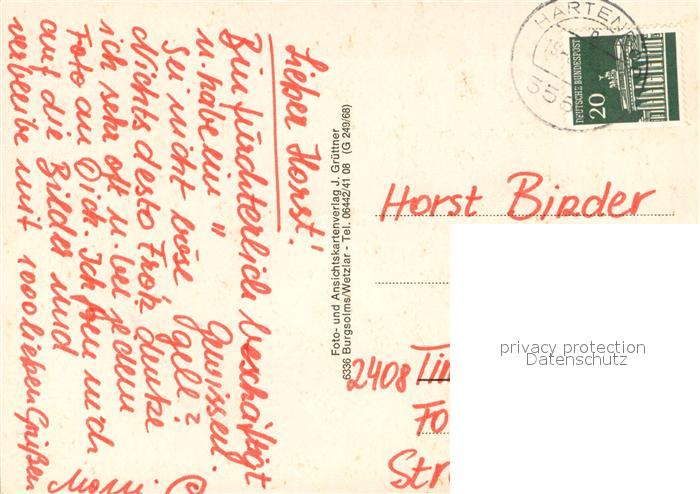 Lieber Horst!
Bin fürchterlich beschäftigt
u. habe ein "
Gewissen.
Sei nicht böse, gell?
Nichts desto Trotz denke
ich sehr oft u. bei jedem
Foto an Dich. Ich freu mich
auf die Bilder und
verbleibe mit 1000 lieben Grüßen
Foto- und Ansichtskartenverlag J. Grüttner
6336 Burgsolms/Wetzlar - Tel. 06442/41 08 (G 249/68)
HARTEN
DEUTSCHE BUNDESPOST
20
Horst Binder
2408 Ti
Fo
Str
privacy protection
Datenschutz